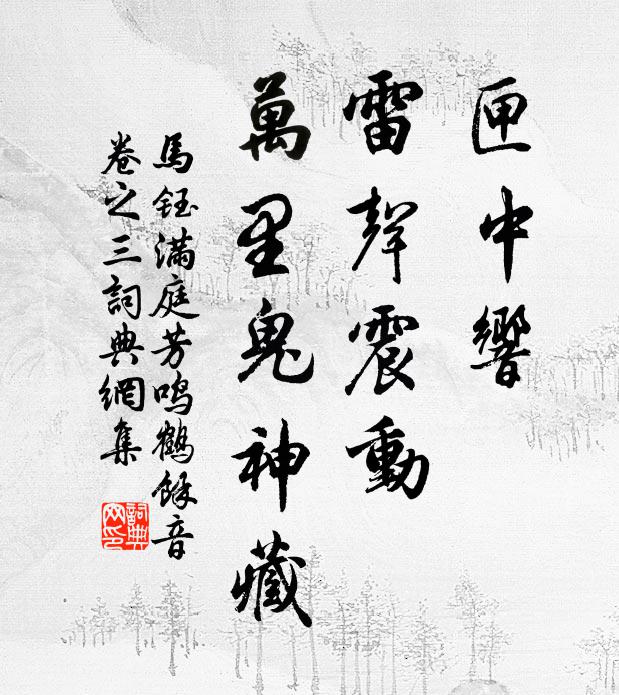 匣中響
雷聲震動
萬里鬼神藏
馬鈺滿庭芳鳴鶴餘音
卷之三詞典網集
詞典
网印